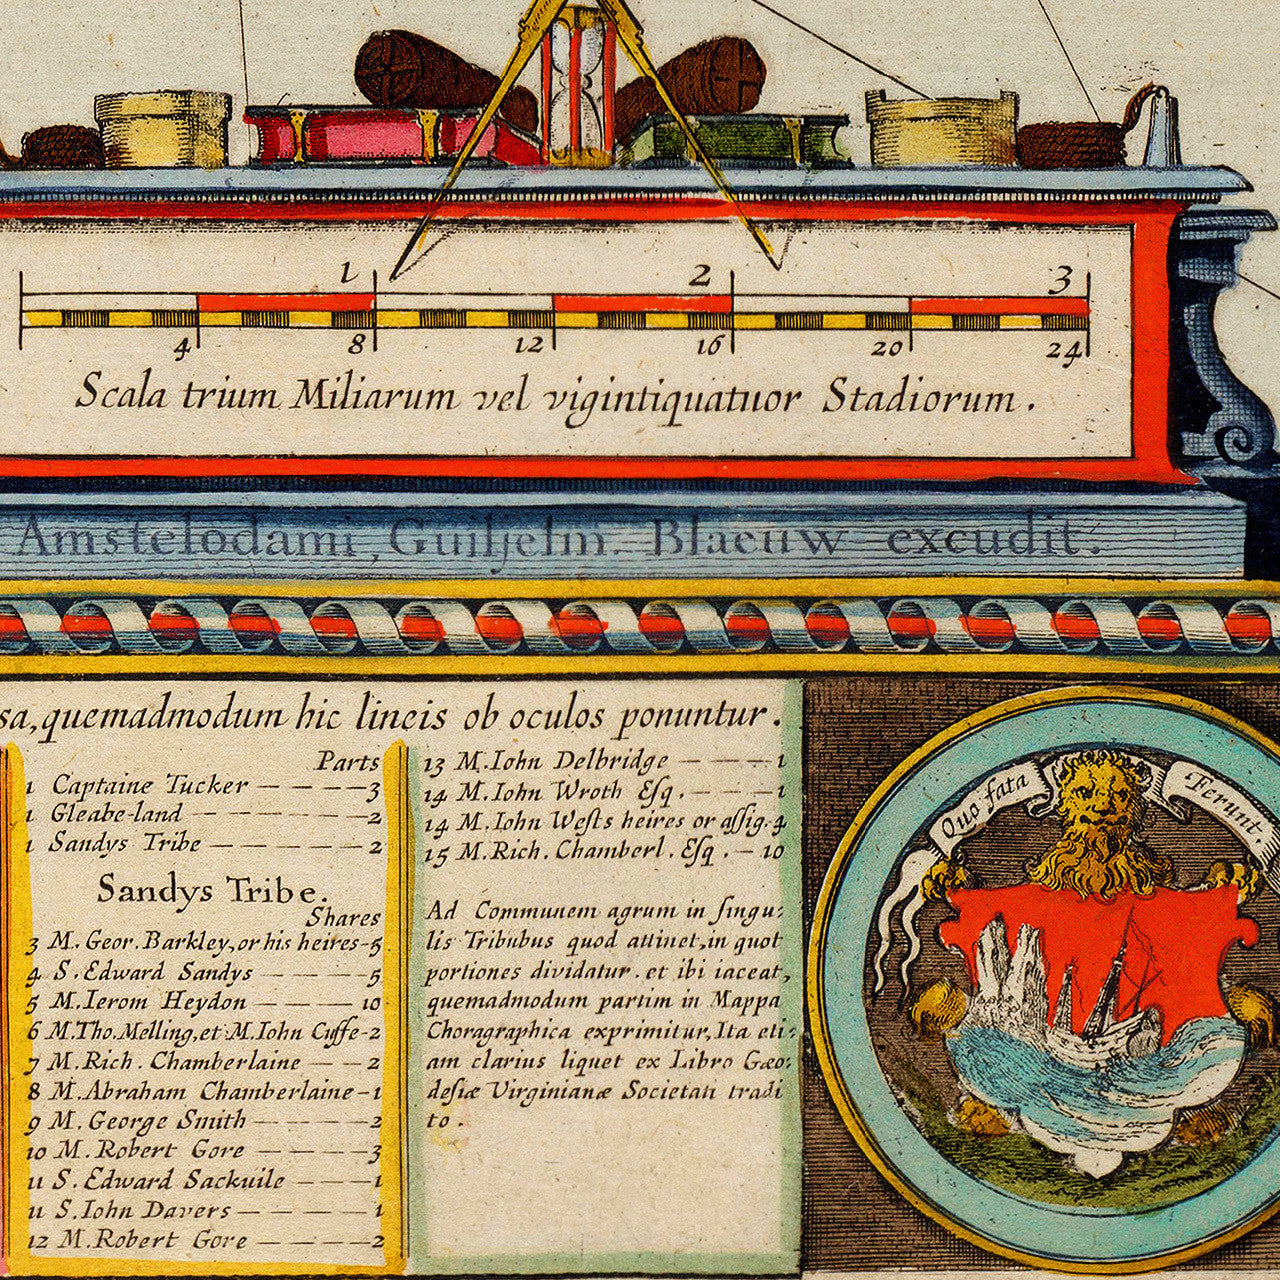 1 2 3
4 8 12 16 20 24
Scala trium Miliarum vel vigintiquatuor Stadiorum.
Amstelodami, Guiljelm. Blaeuw excudit.
sa, quemadmodum hic lineis ob oculos ponuntur.
Parts
1 Captaine Tucker — — — — 3
1 Gleabe-land — — — — — — 2
1 Sandys Tribe — — — — — 2
Sandys Tribe.
Shares
3 M. Geor. Barkley, or his heires - 5
4 S. Edward Sandys — — — — 5
5 M. Ierom Heydon — — — 10
6 M. Tho. Melling, et M. Iohn Cuffe - 2
7 M. Rich. Chamberlaine — — 2
8 M. Abraham Chamberlaine - 1
9 M. George Smith — — — — 2
10 M. Robert Gore — — — — 3
11 S. Edward Sackuile — — — 1
11 S. Iohn Davers — — — — 1
12 M. Robert Gore — — — — 2
13 M. Iohn Delbridge — — — 1
14 M. Iohn Wroth Esq. — — — 1
14 M. Iohn Wests heires or assig. 4
15 M. Rich. Chamberl. Esq. — 10
Ad Communem agrum in singu:
lis Tribubus quod attinet, in quot
portiones dividatur. et ibi iaceat,
quemadmodum partim in Mappa
Choragraphica exprimitur, Ita eti:
am clarius liquet ex Libro Geo:
desiæ Virginianæ Societati tradi
to.
Quo fata
Ferunt.